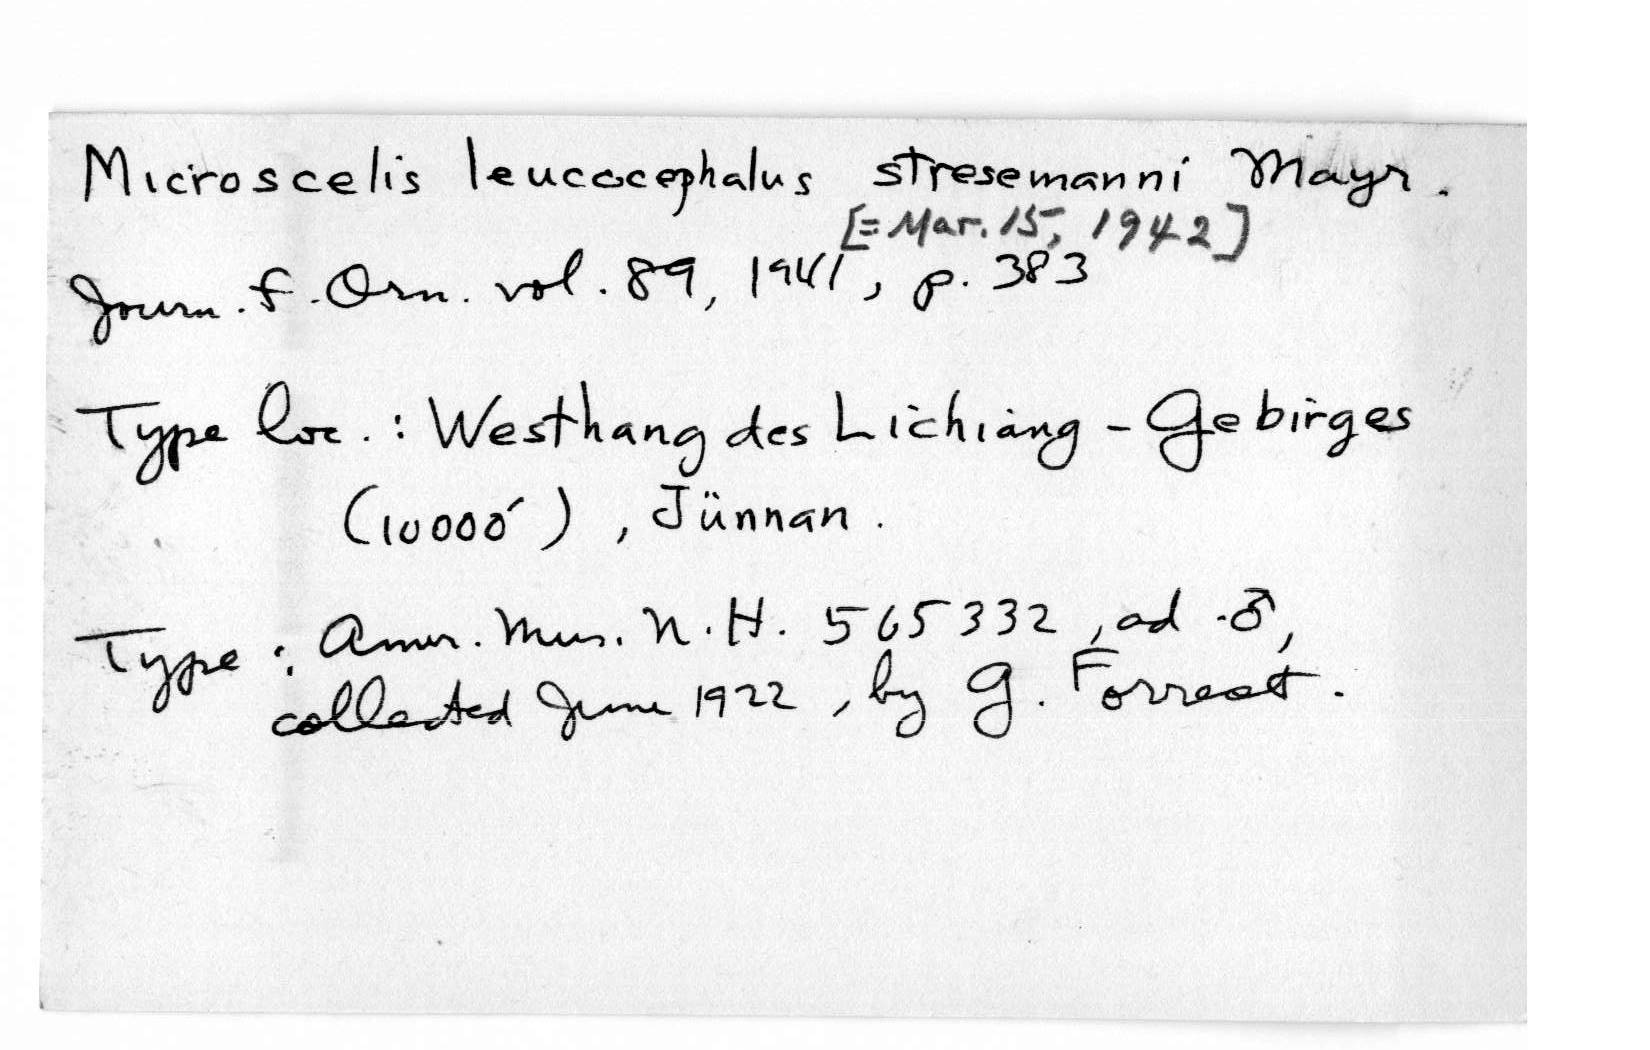 Microscelis leucocephalus stresemanni Mayr.
[= Mar. 15, 1942]
Journ. f. Orn. vol. 89, 1941, p. 383
Type loc.: Westhang des Lichiang-Gebirges
(10000'), Jünnan.
Type: Amer. Mus. N.H. 565332, ad. ♂,
collected June 1922, by G. Forrest.